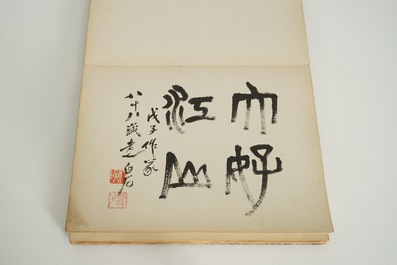 大好
江山
戊子作篆
八十八歲老白石